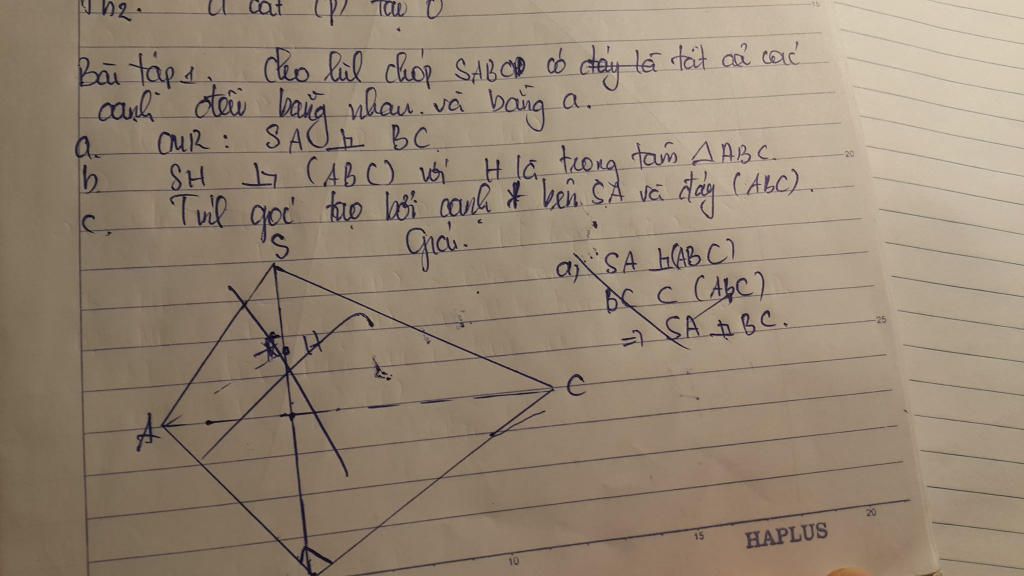 Th2. d cắt (P) tại O
Bài tập 1. Cho hìh chóp SABC có đáy là tất cả các
cạnh đều bằng nhau. và bằng a.
a. CMR: SA ⊥ BC.
b SH ⊥ (ABC) với H là trọng tâm △ABC.
c. Tíh góc tạo bởi cạnh bên SA và đáy (ABC).
Giải.
S
a, SA ⊥ (ABC)
BC ⊂ (ABC)
=> SA ⊥ BC.
H
A
C
15
20
25
10
15
20
HAPLUS